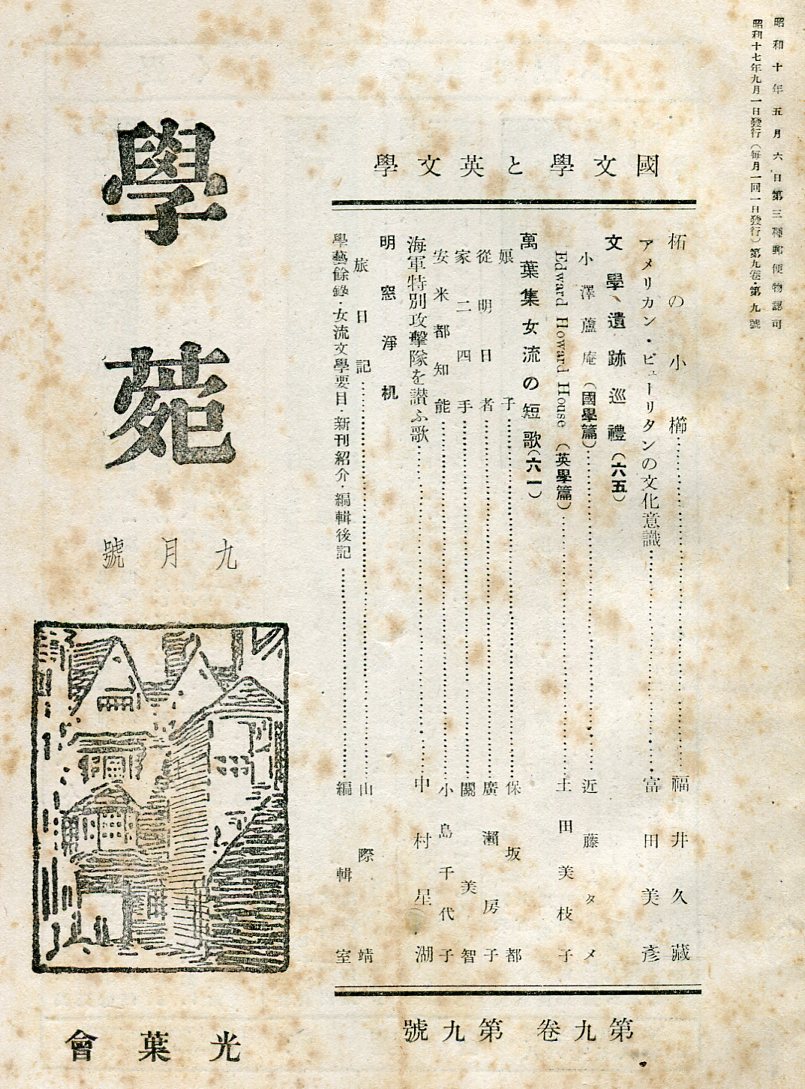 昭和十年五月六日第三種郵便物認可
昭和十七年九月一日發行(毎月一回一日發行)第九卷・第九號
國文學と英文學
柘の小櫛…福井久藏
アメリカン・ピューリタンの文化意識…富田美彥
文學遺跡巡禮(六五)
小澤蘆庵(國學篇)…近藤タメ
Edward Howard House(英學篇)…土田美枝子
萬葉集女流の短歌(六一)
娘子…保坂都
從明日者…廣瀨房子
家二四手…關美智
安米都知能…小島千代子
海軍特別攻擊隊を讃ふ歌…中村星湖
明窓淨机
旅日記…山際靖
學藝餘錄・女流文學要目・新刊紹介・編輯後記…編輯室
第九卷 第九號
學苑
九月號
光葉會